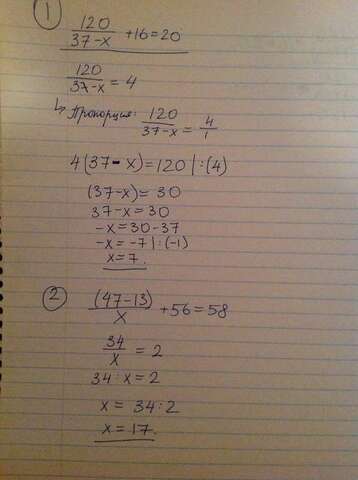 1
120/(37-x) +16=20
120/(37-x) = 4
↳ Пропорция: 120/(37-x) = 4/1
4(37-x)=120 |:(4)
(37-x)=30
37-x=30
-x=30-37
-x=-7 |:(-1)
x=7.
2
(47-13)/x +56=58
34/x = 2
34:x=2
x=34:2
x=17.